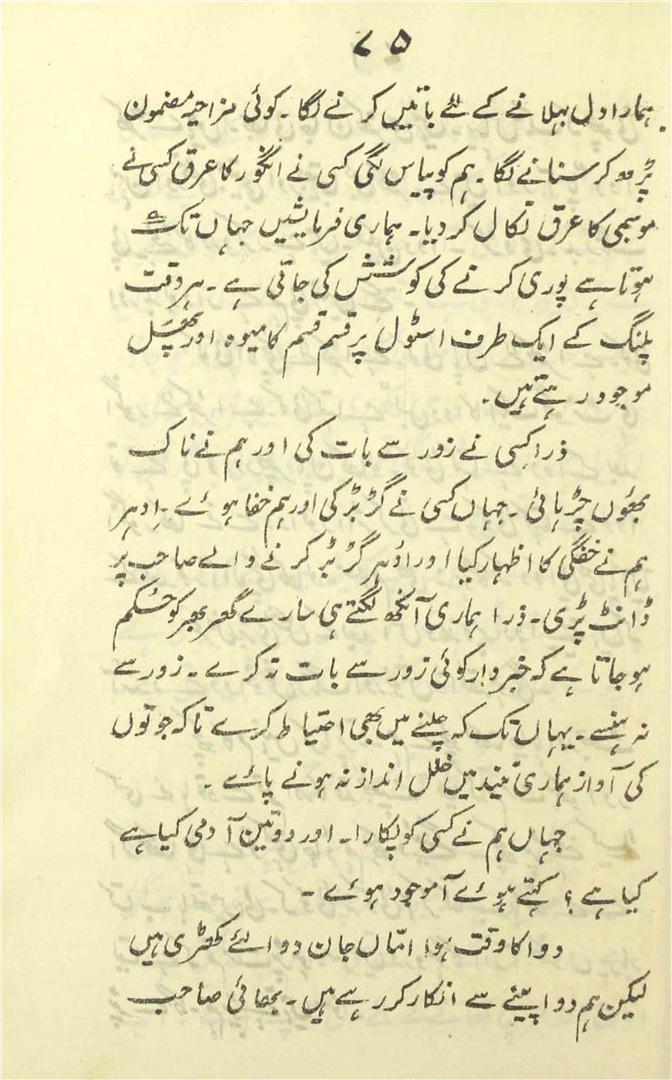 ۷۵
ہمارا دل بہلانے کے لئے باتیں کرنے لگا۔ کوئی مزاحیہ مضمون
پڑھ کر سنانے لگا۔ ہم کو پیاس لگی کسی نے انگور کا عرق کسی نے
موسمی کا عرق نکال کر دیا۔ ہماری فرمایشیں جہاں تک
ہوتا ہے پوری کرنے کی کوشش کی جاتی ہے۔ ہر وقت
پلنگ کے ایک طرف اسٹول پر قسم قسم کا میوہ اور پھل
موجود رہتے ہیں۔
ذرا کسی نے زور سے بات کی اور ہم نے ناک
بھوں چڑہائی۔ جہاں کسی نے گڑبڑ کی اور ہم خفا ہوئے۔ اِدہر
ہم نے خفگی کا اظہار کیا اور اُدہر گڑبڑ کرنے والے صاحب پر
ڈانٹ پڑی۔ ذرا ہماری آنکھ لگتے ہی سارے گھر بھر کو حُکم
ہو جاتا ہے کہ خبردار کوئی زور سے بات نہ کرے۔ زور سے
نہ ہنسے۔ یہاں تک کہ چلنے میں بھی احتیاط کرے تاکہ جوتوں
کی آواز ہماری نیند میں خلل انداز نہ ہونے پائے۔
جہاں ہم نے کسی کو پکارا۔ اور دو تین آدمی کیا ہے
کیا ہے؟ کہتے ہوئے آموجود ہوئے۔
دوا کا وقت ہوا امّاں جان دوا لئے کھڑی ہیں
لیکن ہم دوا پینے سے انکار کر رہے ہیں۔ بھائی صاحب